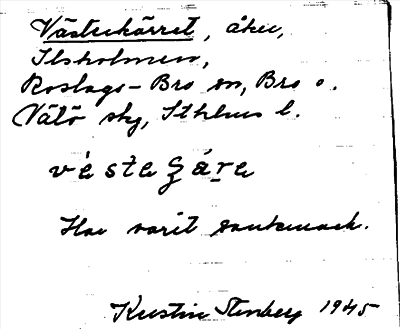 Västerkärret, åker,
Ilsholmen,
Roslags-Bro sn, Bro o.
Vätö skg, Sthlms l.
vèsteʒára
Har varit sankmark.
Kerstin Stenberg 1945